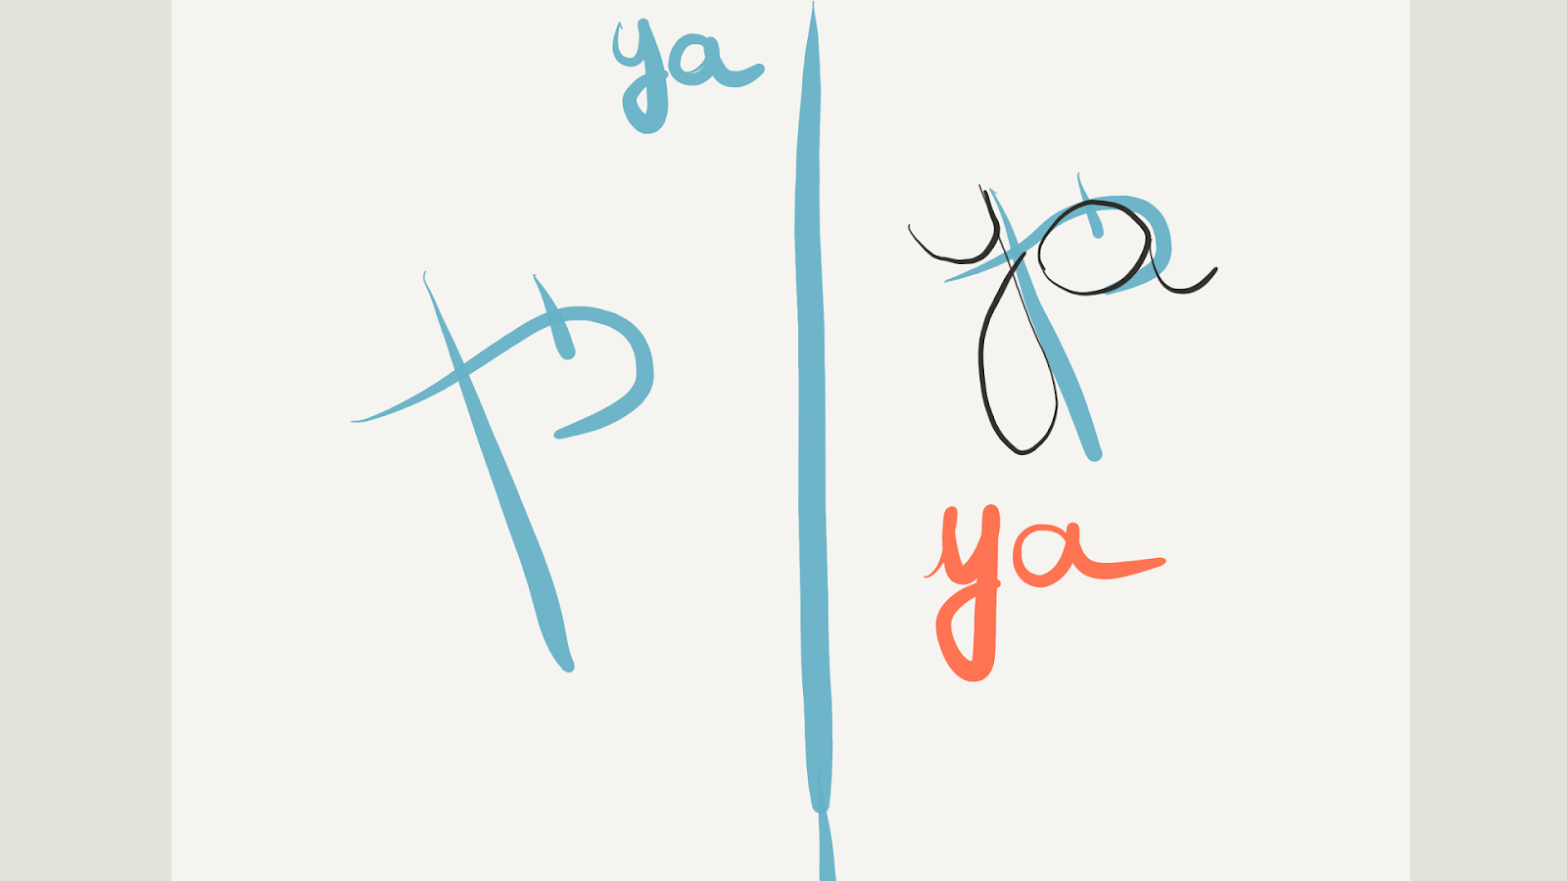 ya
や
や
ya
ya